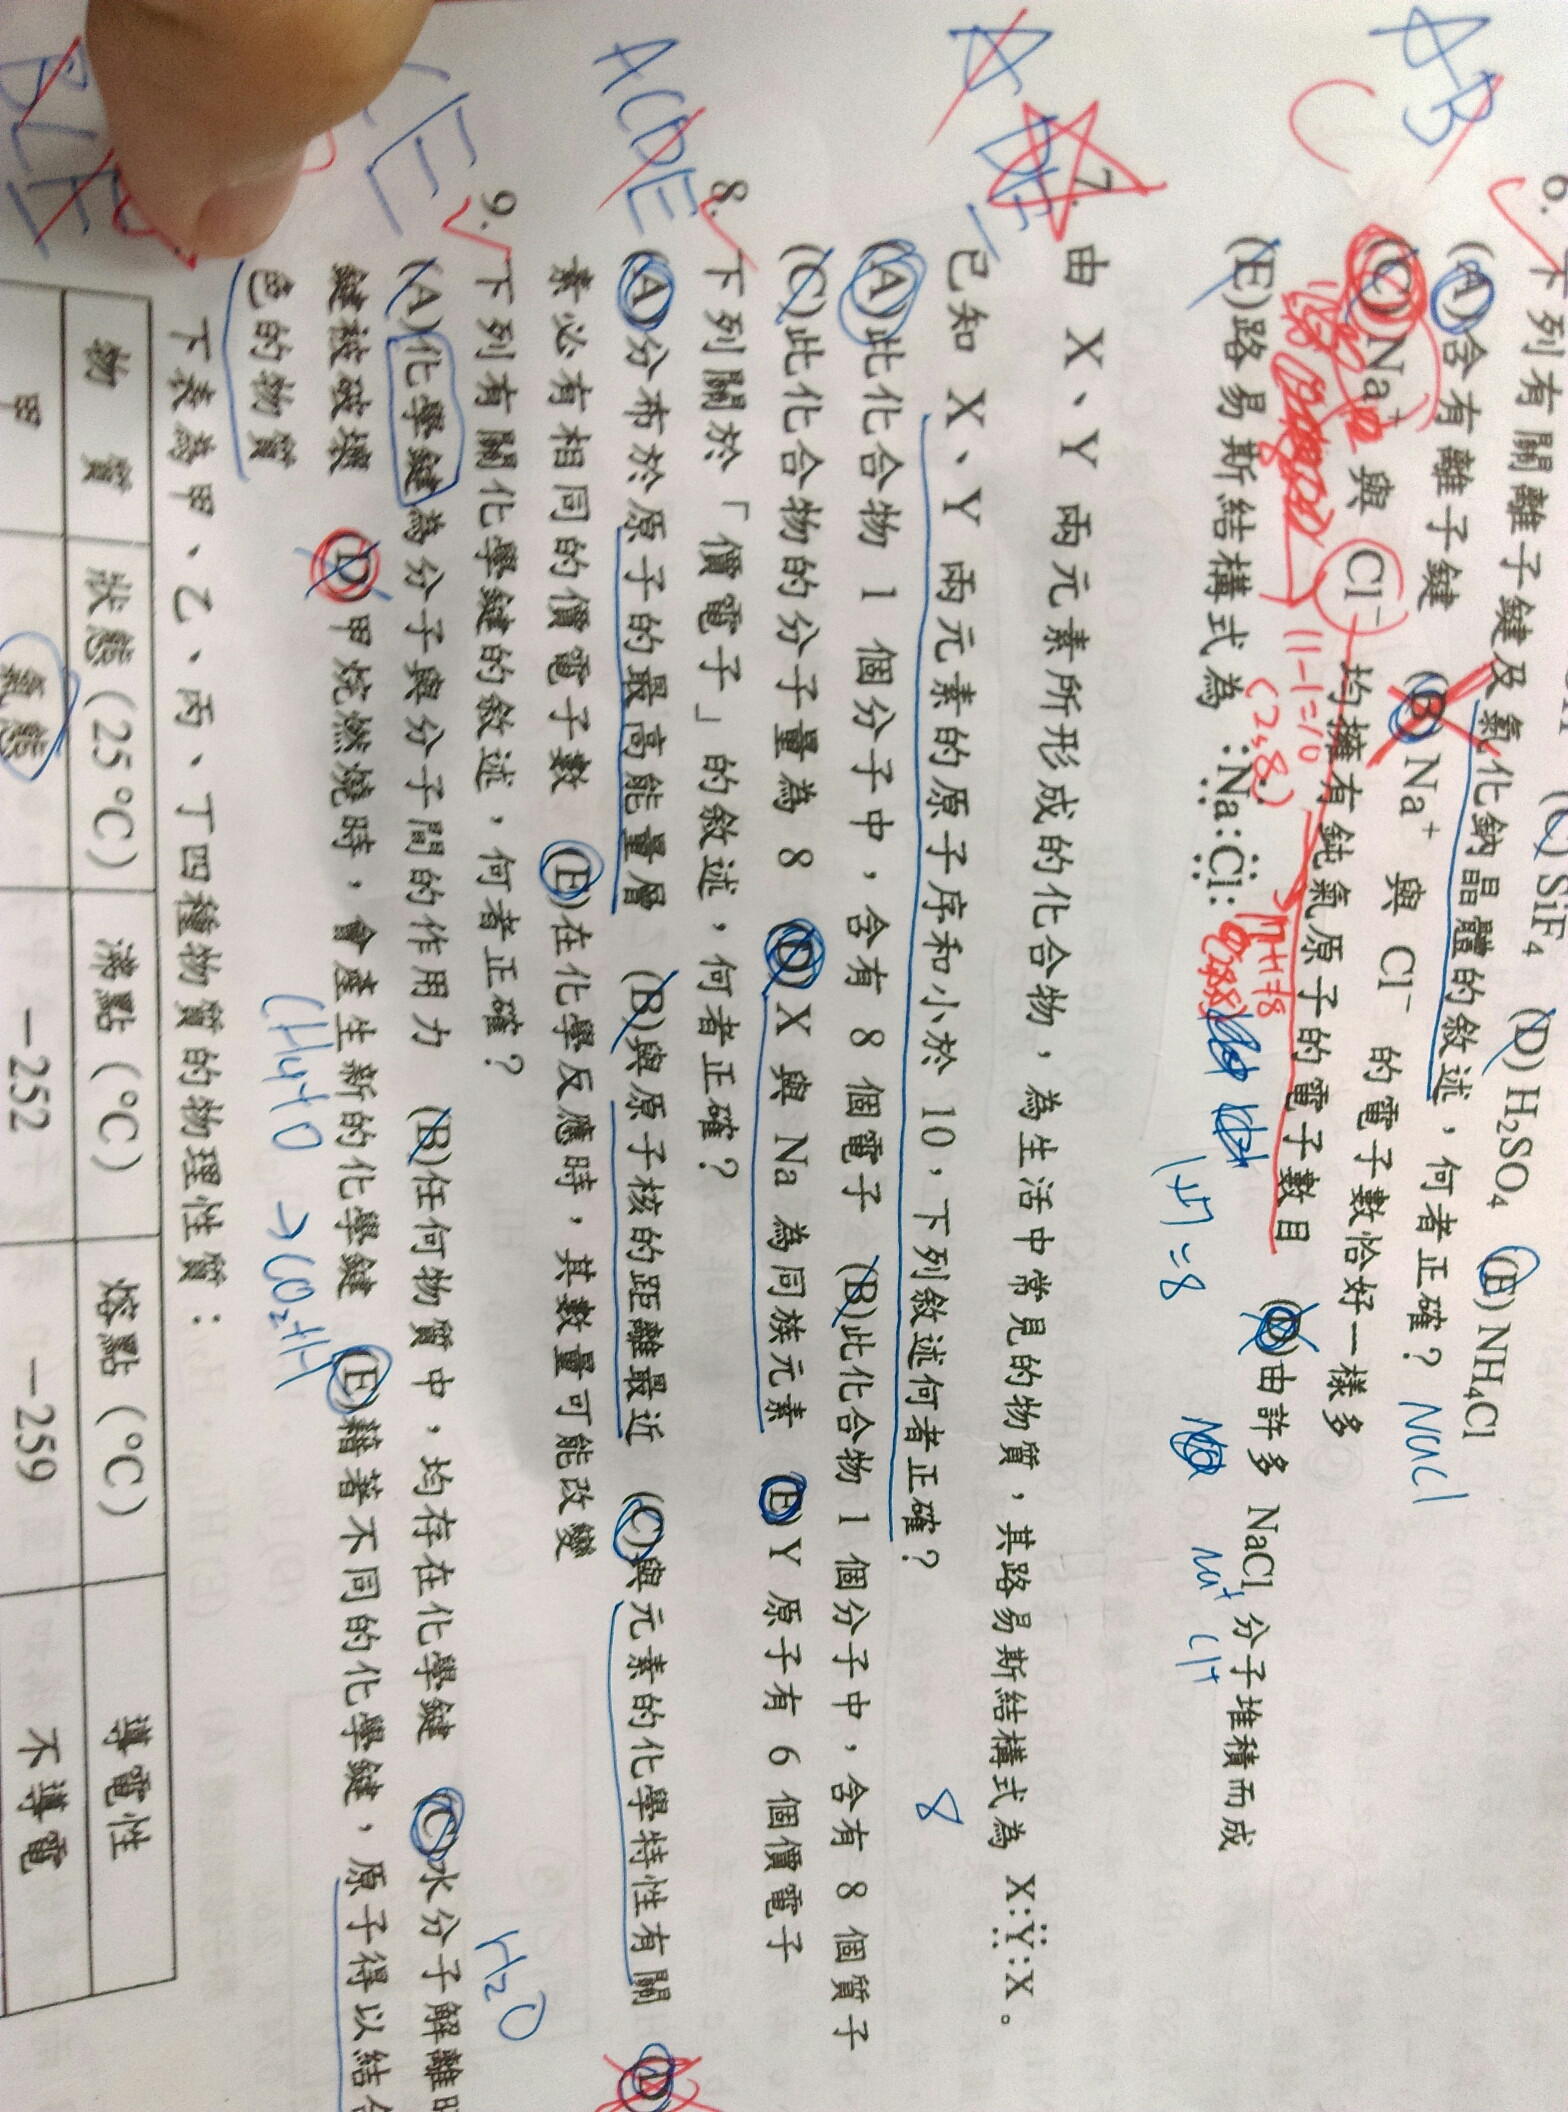 (C) SiF4 (D) H2SO4 (E) NH4Cl
6. 下列有關離子鍵及氯化鈉晶體的敘述，何者正確？ NaCl
(A)含有離子鍵 (B) Na+ 與 Cl- 的電子數恰好一樣多
(C) Na+ 與 Cl- 均擁有鈍氣原子的電子數目 (D)由許多 NaCl 分子堆積而成
11-1=10
(2,8)
(E)路易斯結構式為 :Na:Cl:
1+7=8
Na+ Cl+
7. 由 X、Y 兩元素所形成的化合物，為生活中常見的物質，其路易斯結構式為 X:Y:X。
已知 X、Y 兩元素的原子序和小於 10，下列敘述何者正確？ 8
(A)此化合物 1 個分子中，含有 8 個電子 (B)此化合物 1 個分子中，含有 8 個質子
(C)此化合物的分子量為 8 (D) X 與 Na 為同族元素 (E) Y 原子有 6 個價電子
8. 下列關於「價電子」的敘述，何者正確？
(A)分布於原子的最高能量層 (B)與原子核的距離最近 (C)與元素的化學特性有關 (D)
素必有相同的價電子數 (E)在化學反應時，其數量可能改變
9. 下列有關化學鍵的敘述，何者正確？ H2O
(A)化學鍵為分子與分子間的作用力 (B)任何物質中，均存在化學鍵 (C)水分子解離
鍵被破壞 (D)甲烷燃燒時，會產生新的化學鍵 (E)藉著不同的化學鍵，原子得以結
色的物質
下表為甲、乙、丙、丁四種物質的物理性質：
物質 狀態(25°C) 沸點(°C) 熔點(°C) 導電性
甲 氣態 -252 -259 不導電
AB
C
A
DE
ACDE